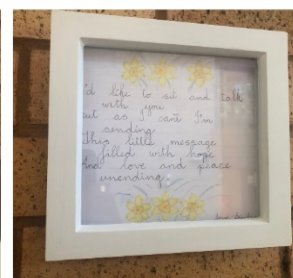 I'd like to sit and talk
with you
but as I can't I'm
sending
This little message
filled with hope
And love and peace
unending.